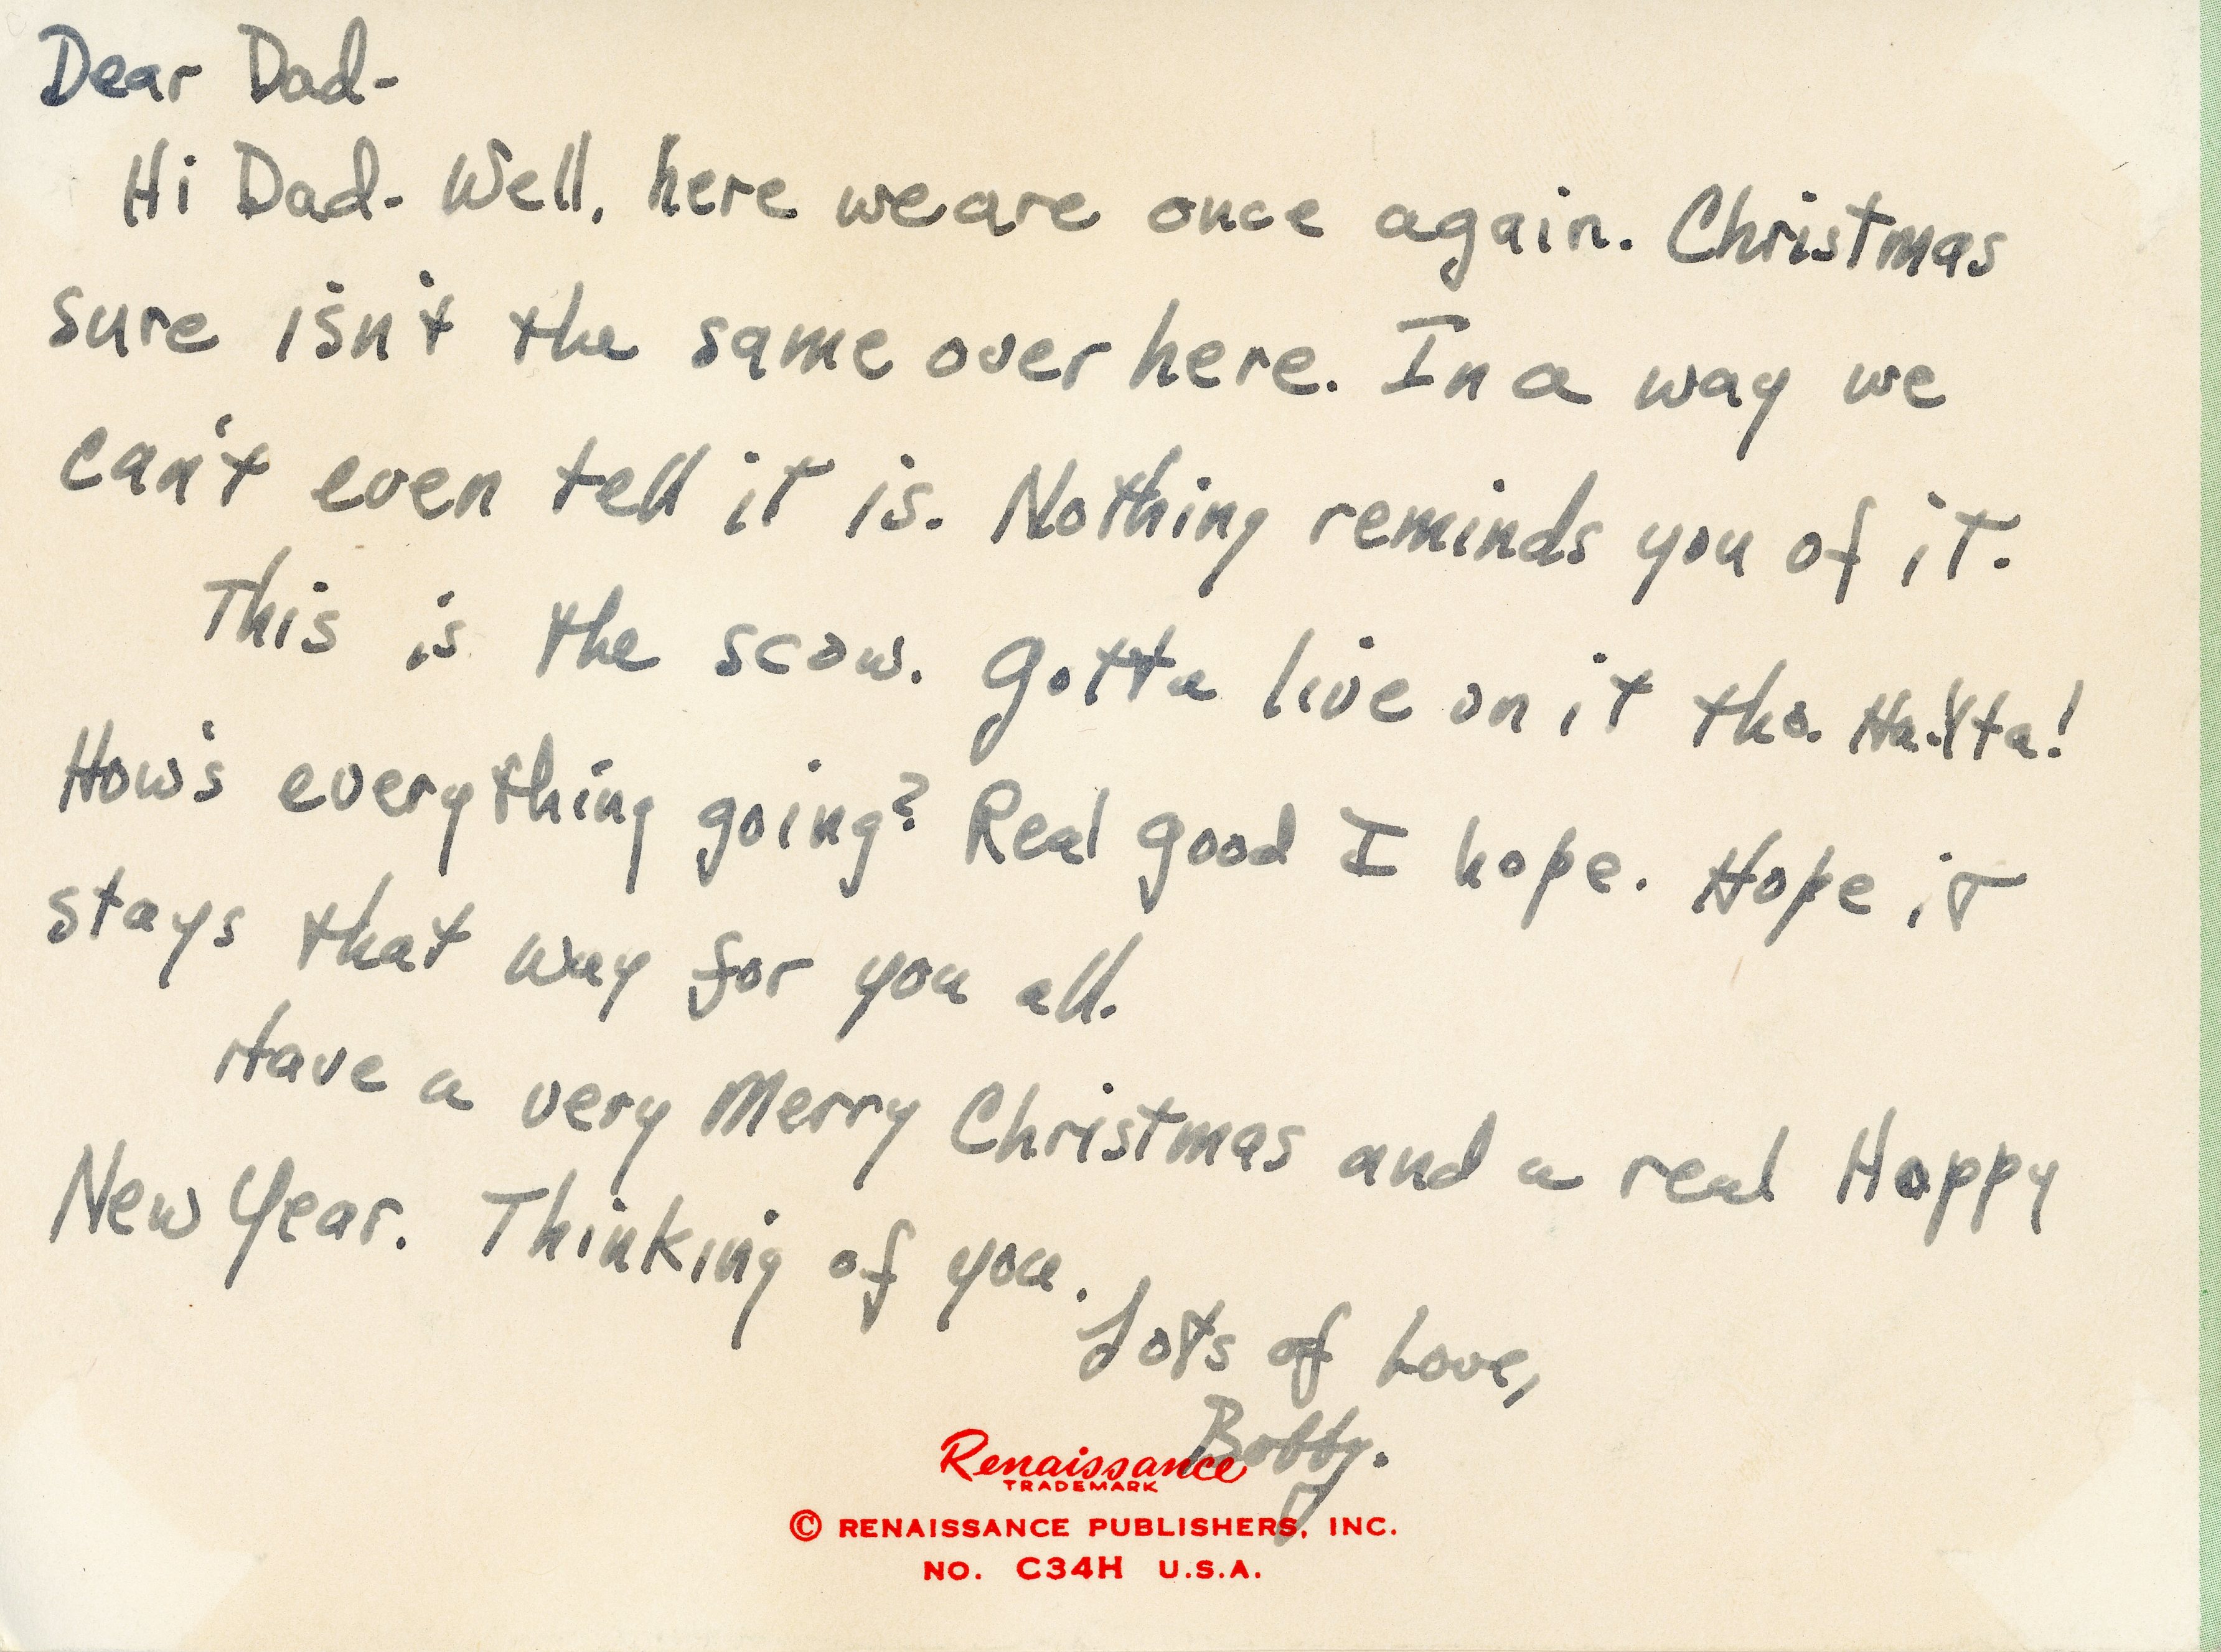 Dear Dad-
Hi Dad- Well, here we are once again. Christmas
sure isn't the same over here. In a way we
can't even tell it is. Nothing reminds you of it.
This is the scow. Gotta live on it tho.
How's everything going? Real good I hope. Hope it
stays that way for you all.
Have a very Merry Christmas and a real Happy
New Year. Thinking of you.
Lots of Love,
Bobby.
Renaissance
TRADEMARK
© RENAISSANCE PUBLISHERS, INC.
NO. C34H U.S.A.